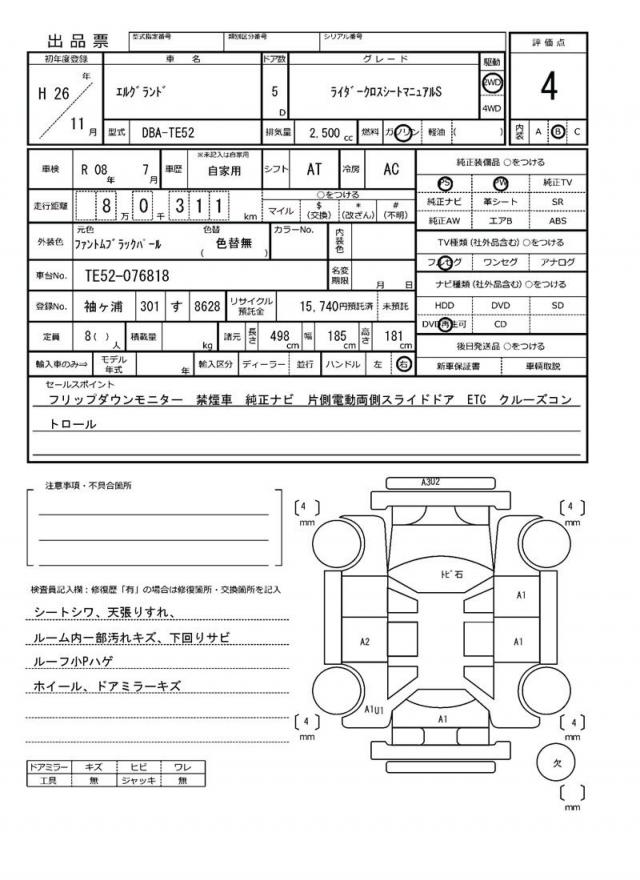 出品票 型式指定番号 類別区分番号 シリアル番号 評価点
初年度登録 車名 ドア数 グレード 駆動
H 26 年 エルグランド 5 D ライダークロスシートマニュアルS 2WD 4WD 4
11 月 型式 DBA-TE52 排気量 2,500 cc 燃料 ガソリン 軽油 ( ) 内装 A B C
車検 R 08 年 7 月 車歴 ※未記入は自家用 自家用 シフト AT 冷房 AC 純正装備品 ○をつける
PS PW 純正TV
走行距離 8 万 0 千 3 1 1 km ○をつける 純正ナビ 革シート SR
マイル $ (交換) * (改ざん) # (不明) 純正AW エアB ABS
外装色 元色 ファントムブラックパール 色替 ( 色替無 ) カラーNo. 内装色 TV種類 (社外品含む) ○をつける
フルセグ ワンセグ アナログ
車台No. TE52-076818 名変期限 月 日 ナビ種類 (社外品含む) ○をつける
登録No. 袖ヶ浦 301 す 8628 リサイクル預託金 15,740円預託済 未預託 HDD DVD SD
DVD再生可 CD
定員 8( ) 人 積載量 kg 諸元 長さ 498 cm 幅 185 cm 高さ 181 cm 後日発送品 ○をつける
輸入車のみ⇒ モデル年式 年 輸入区分 ディーラー 並行 ハンドル 左 右 新車保証書 車輌取説
セールスポイント
フリップダウンモニター 禁煙車 純正ナビ 片側電動両側スライドドア ETC クルーズコン
トロール
注意事項・不具合箇所
A3U2
[ 4 ] mm [ 4 ] mm
トビ石
検査員記入欄：修復歴「有」の場合は修復箇所・交換箇所を記入
シートシワ、天張りすれ、 A1
ルーム内一部汚れキズ、下回りサビ A2 A1
ルーフ小Pハゲ
ホイール、ドアミラーキズ
A1U1 A1
[ 4 ] mm [ 4 ] mm
ドアミラー キズ ヒビ ワレ 欠
工具 無 ジャッキ 無
[ ] mm